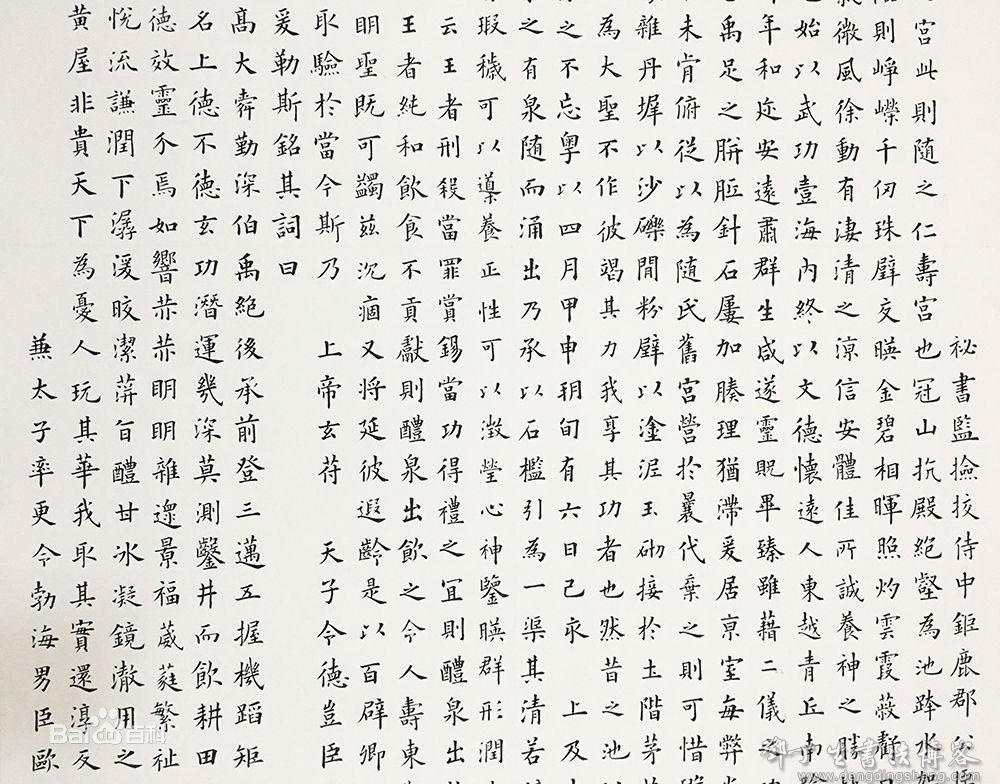 祕書監撿挍侍中鉅鹿郡公臣
宮此則隨之仁壽宮也冠山抗殿絕壑為池跨水架
則崢嶸千仞珠璧交暎金碧相暉照灼雲霞蔽虧
微風徐動有淒清之涼信安體佳所誠養神之勝
始以武功壹海內終以文德懷遠人東越青丘南踰
年和迩安遠肅群生咸遂靈貺畢臻雖藉二儀之功
禹足之胼胝針石屢加腠理猶滯爰居京室每弊炎
未肯俯從以為隨氏舊宮營於曩代棄之則可惜毀
雜丹墀以沙礫間粉壁以塗泥玉砌接於土階茅茨
為大聖不作彼竭其力我享其功者也然昔之池
之不忘粵以四月甲申朔旬有六日己亥 上及中
之有泉隨而涌出乃承以石檻引為一渠其清若
瑕穢可以導養正性可以澂瑩心神鑒暎群形潤
云王者刑殺當罪賞錫當功得禮之宜則醴泉出
王者純和飲食不貢獻則醴泉出飲之令人壽東
明聖既可蠲茲沉痼又將延彼遐齡是以百辟卿
取驗於當今斯乃 上帝玄符 天子令德豈臣
爰勒斯銘其詞曰
高大舜勤深伯禹絕後承前登三邁五握機蹈矩
名上德不德玄功潛運幾深莫測鑿井而飲耕田
德效靈介焉如響赫赫明明雜遝景福葳蕤繁祉
悅流謙潤下潺湲皎潔萍旨醴甘冰凝鏡澈用之
黃屋非貴天下為憂人玩其華我取其實還淳反
兼太子率更令勃海男臣歐
Bai百科